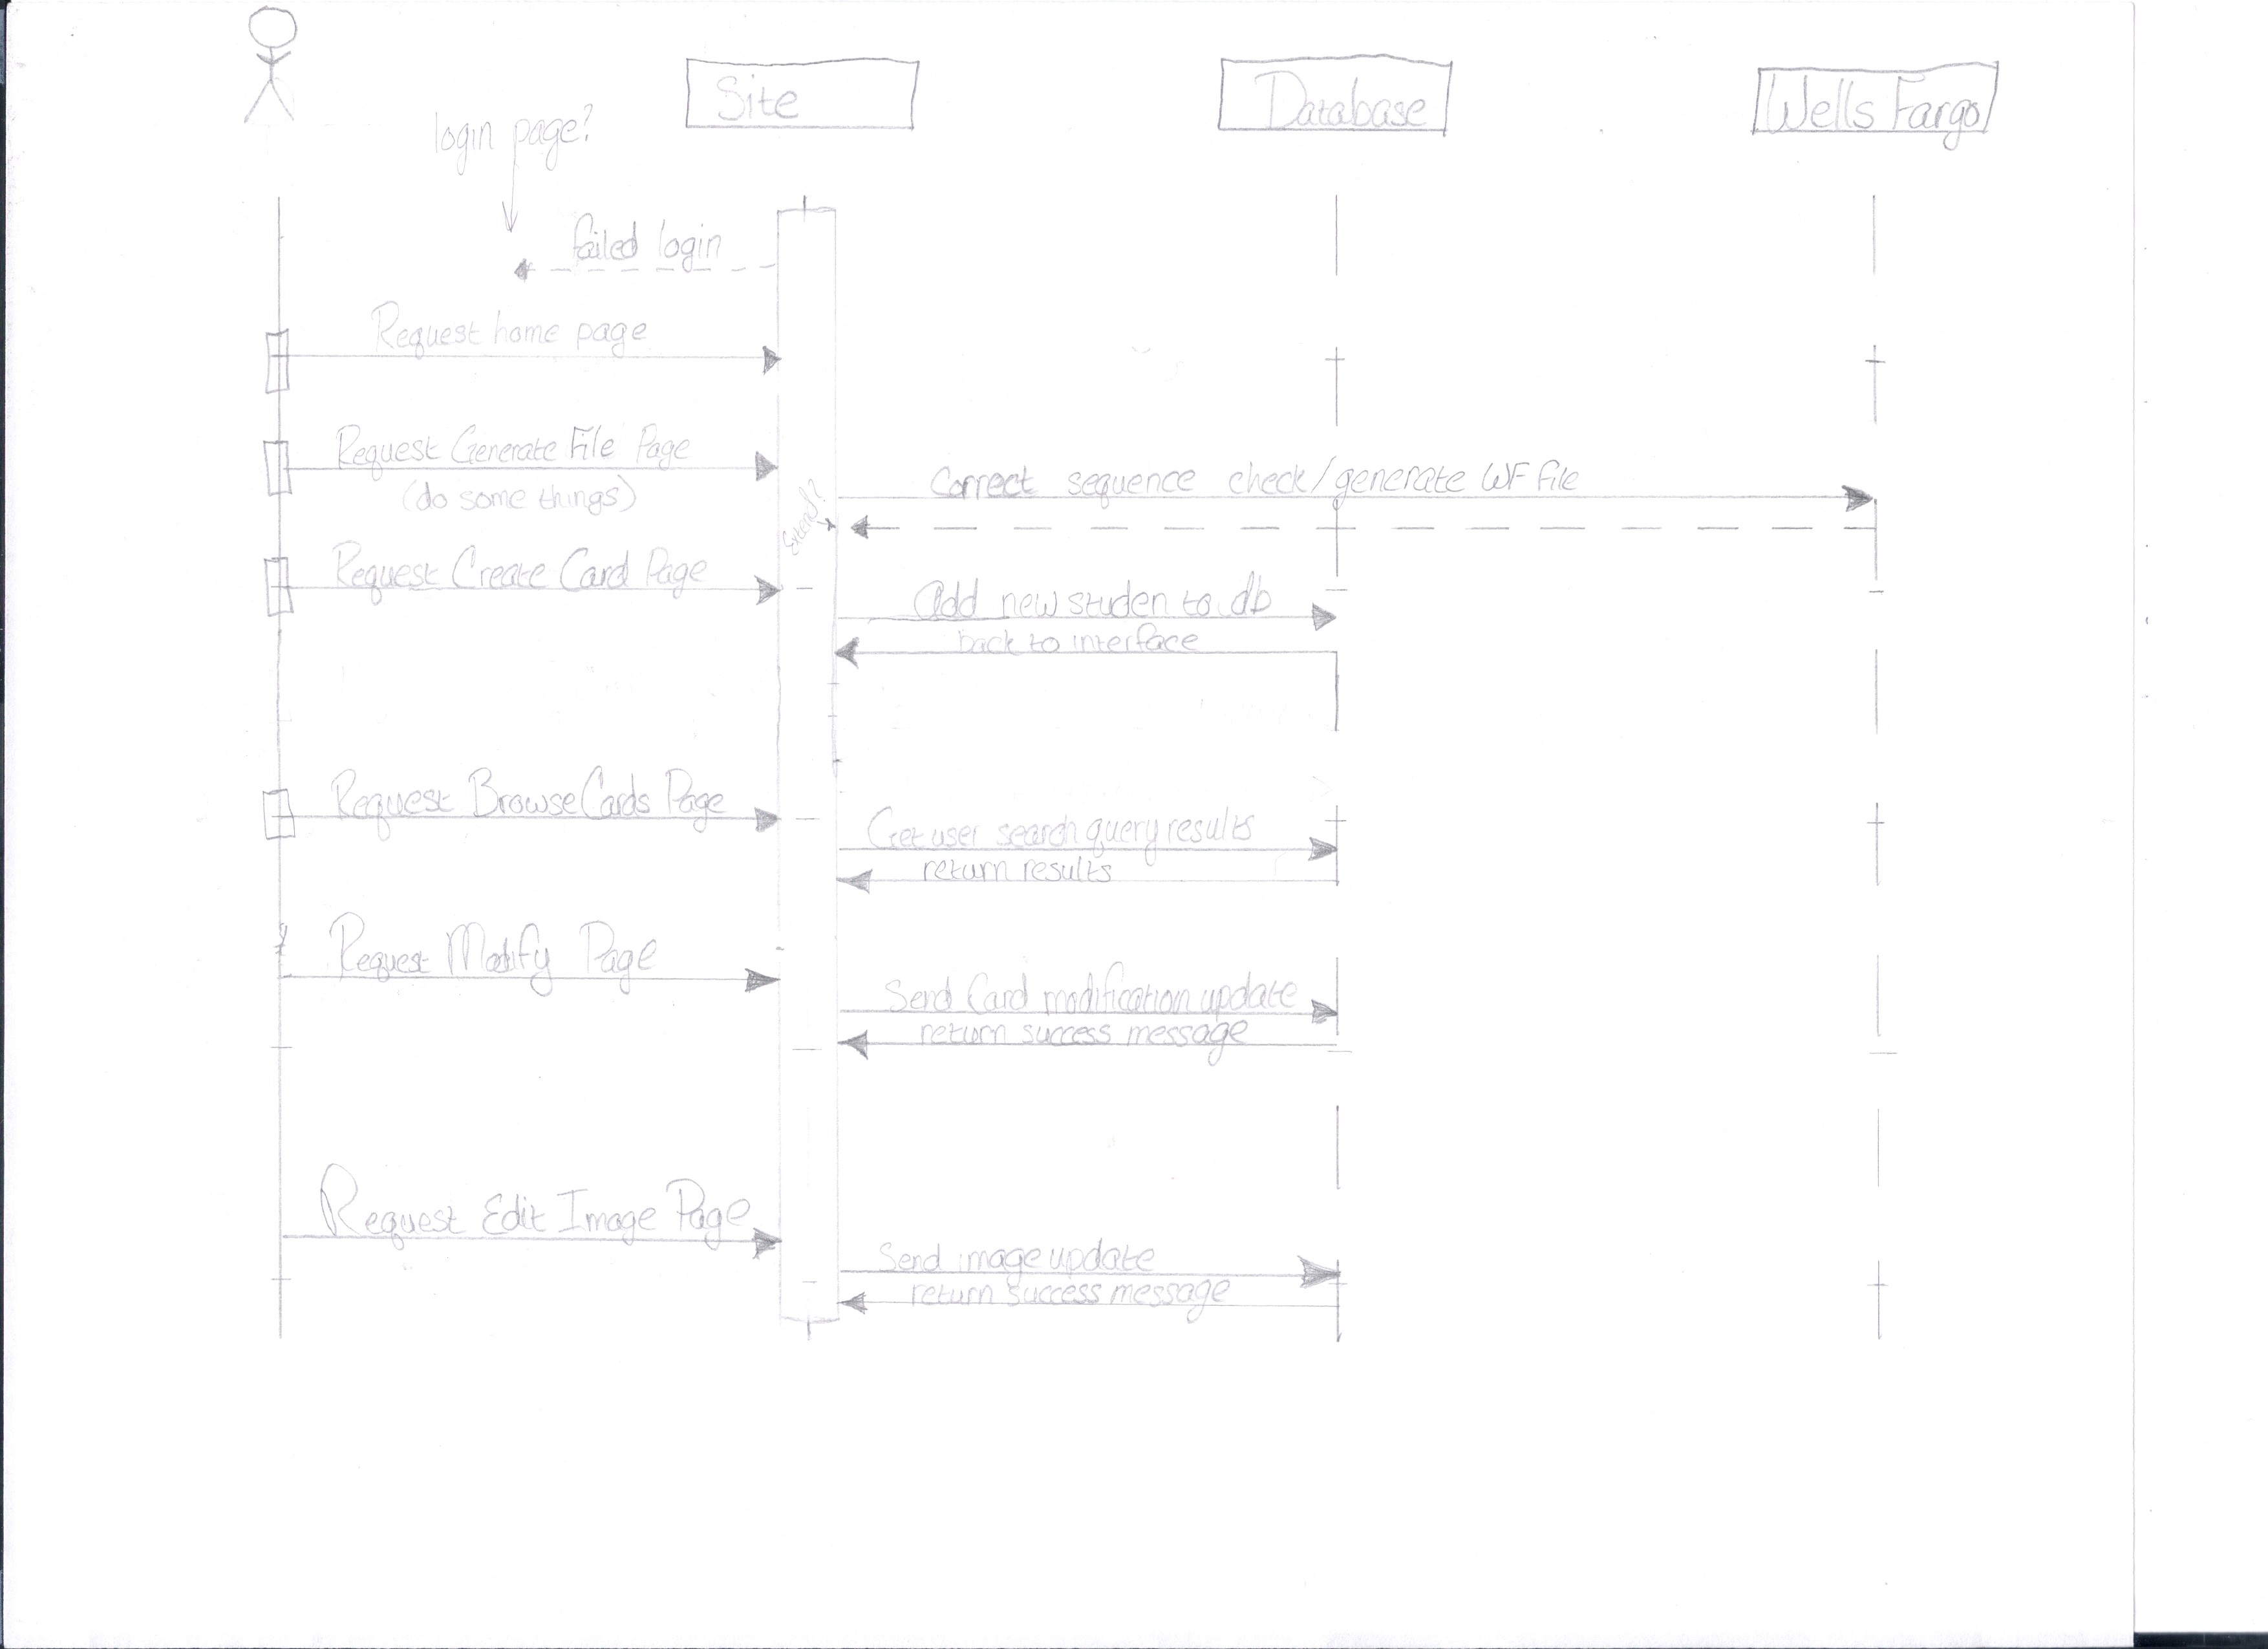 Site
Database
Wells Fargo
login page?
failed login
Request home page
Request Generate File Page
(do some things)
Correct sequence check/generate WF file
Request Create Card Page
Add new studen to db
back to interface
Request Browse Cards Page
Get user search query results
return results
Request Modify Page
Send Card modification update
return success message
Request Edit Image Page
Send image update
return success message